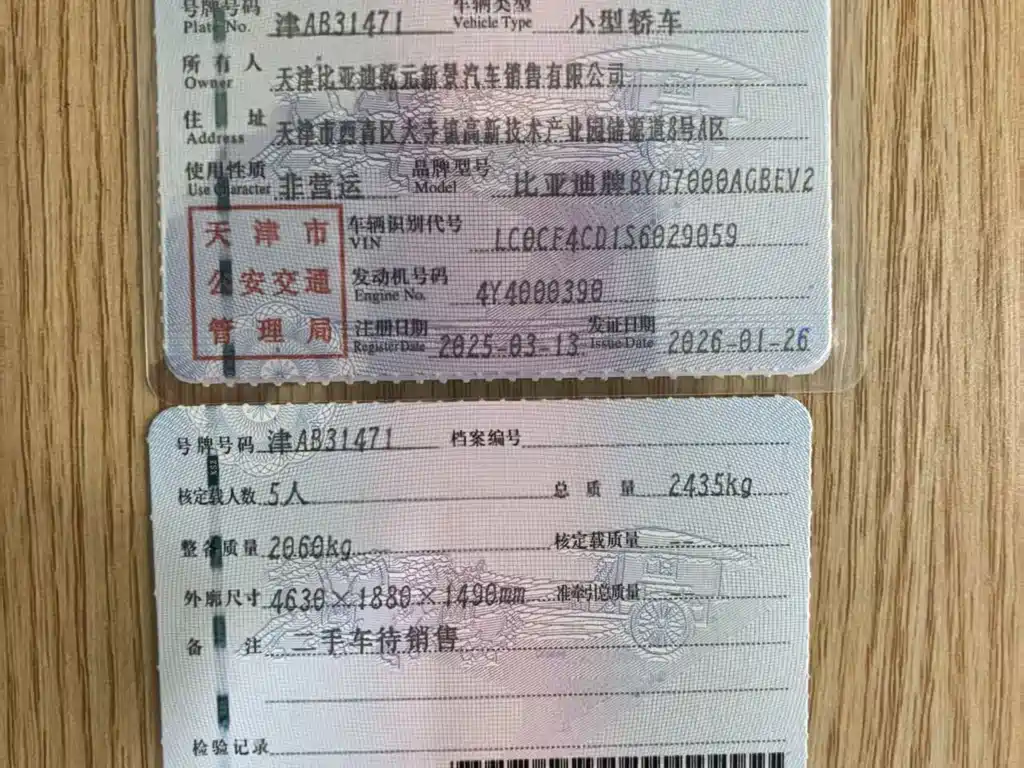 号牌号码 津AB31471 车辆类型 小型轿车
Plate No. Vehicle Type
所有人 天津比亚迪乾元新景汽车销售有限公司
Owner
住址 天津市西青区大寺镇高新技术产业园储源道8号A区
Address
使用性质 非营运 品牌型号 比亚迪牌BYD7000AGBEV2
Use Character Model
天津市
公安交通
管理局
车辆识别代号 LC0CF4CD1S6029059
VIN
发动机号码 4Y4000390
Engine No.
注册日期 2025-03-13 发证日期 2026-01-26
Register Date Issue Date
号牌号码 津AB31471 档案编号
核定载人数 5人 总质量 2435kg
整备质量 2060kg 核定载质量 --
外廓尺寸 4630×1880×1490mm 准牵引总质量 --
备注 二手车待销售
检验记录